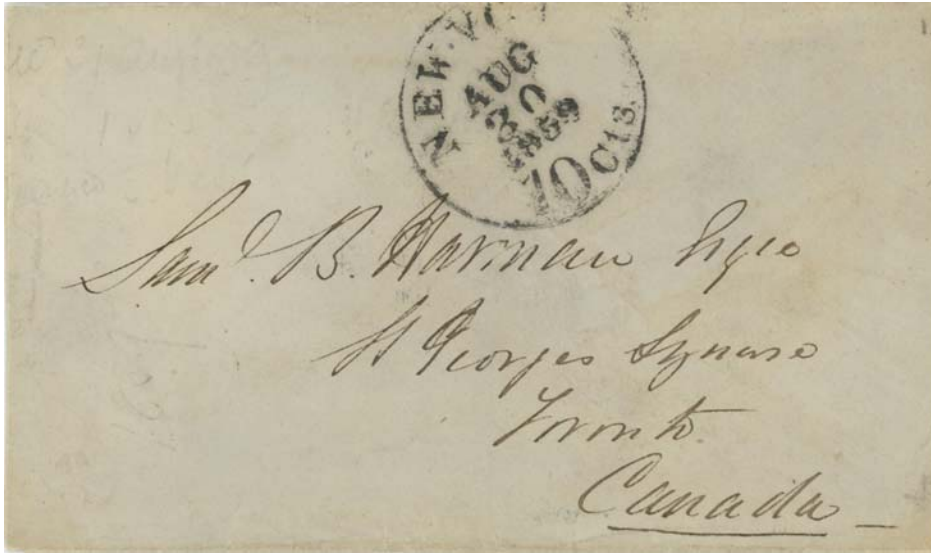 NEW-YO
AUG
30
1859
10 Cts.
Saml. B. Harman Esqre
St Georges Square
Toronto
Canada